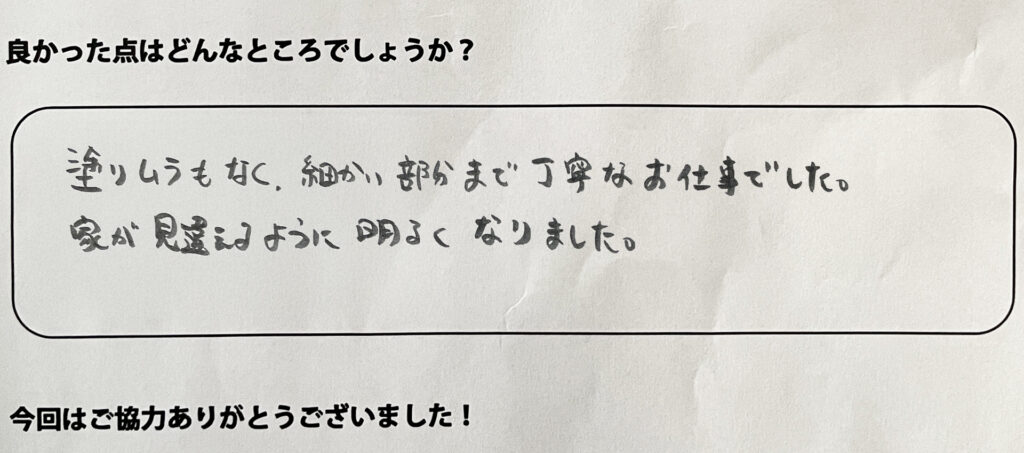 良かった点はどんなところでしょうか？
塗りムラもなく、細かい部分まで丁寧なお仕事でした。
家が見違えるように明るくなりました。
今回はご協力ありがとうございました！